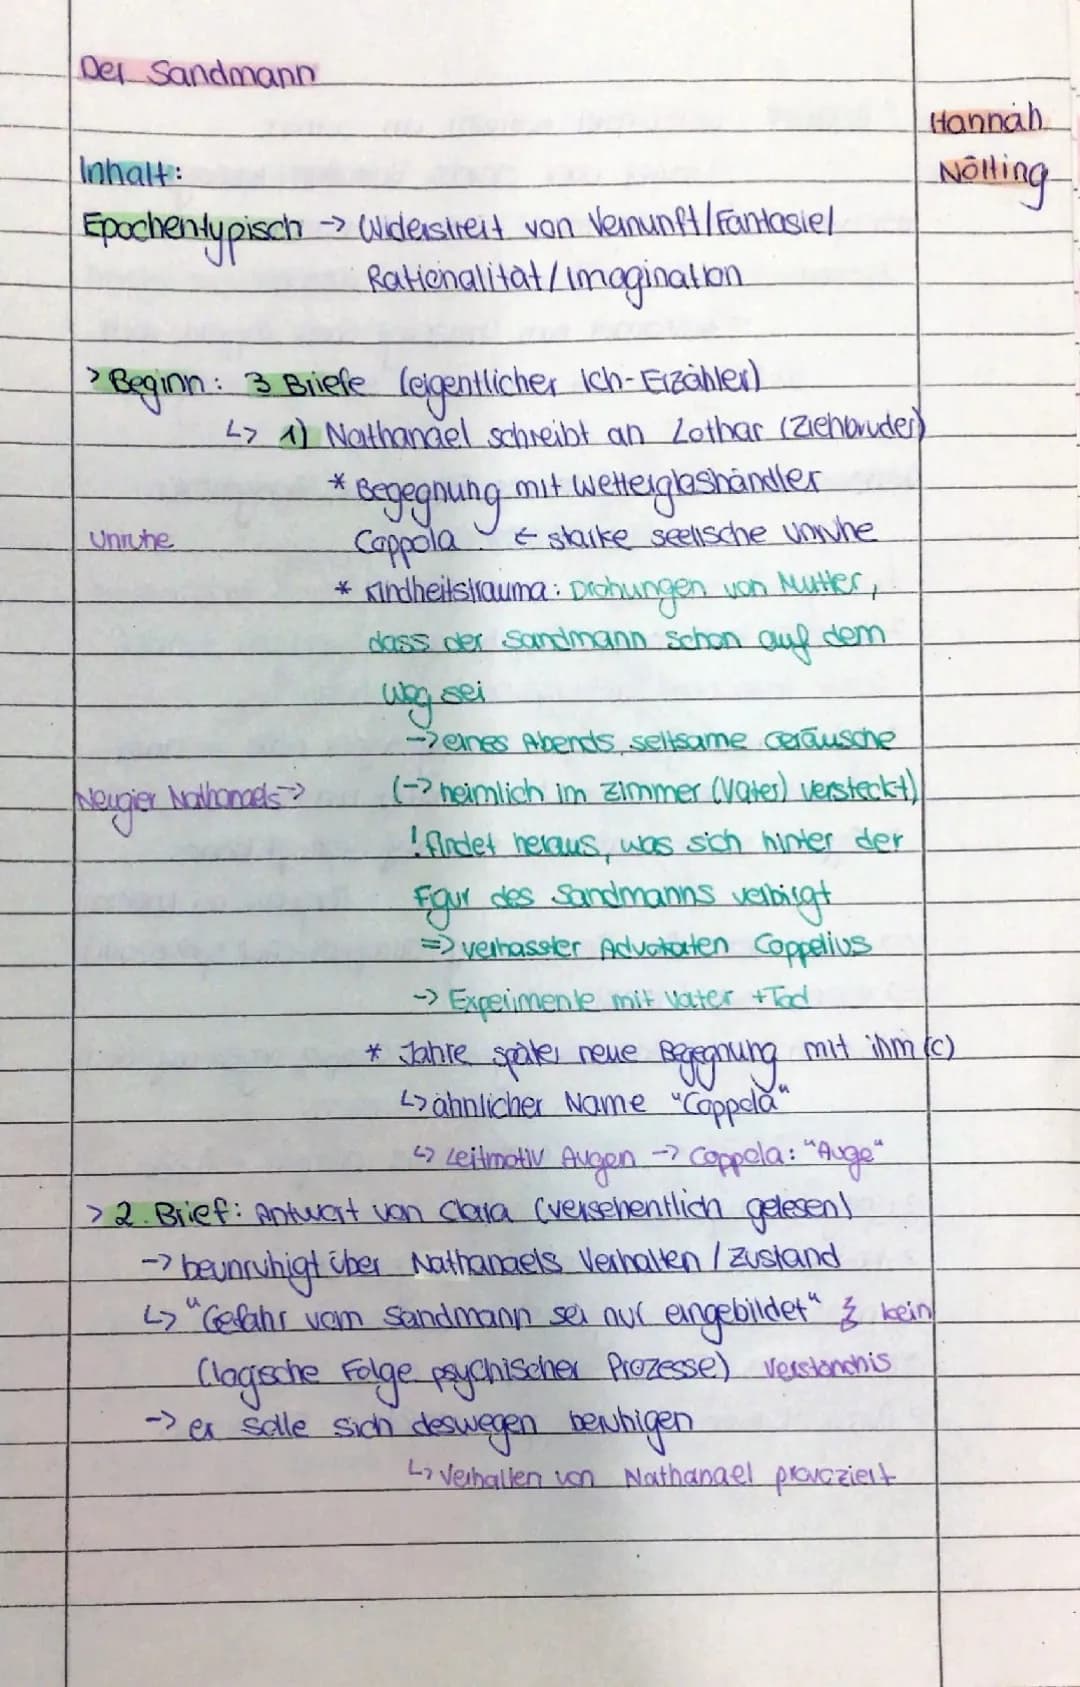 Der Sandmann
Hannah
Nölting
Inhalt:
Epochentypisch -> Widerstreit von Vernunft/Fantasie/
Rationalität/Imagination
> Beginn: 3 Briefe (eigentlicher Ich-Erzähler)
↳ 1) Nathanael schreibt an Lothar (Ziehbruder)
* Begegnung mit Wetterglashändler
Unruhe
Coppola ← starke seelische Unruhe
* Kindheitstrauma: Drohungen von Mutter,
dass der Sandmann schon auf dem
Weg sei
-> eines Abends seltsame Geräusche
Neugier Nathanaels ->
(-> heimlich im Zimmer (Vater) versteckt)
! findet heraus, was sich hinter der
Figur des Sandmanns verbirgt
=> verhasster Advokaten Coppelius
-> Experimente mit Vater + Tod
* Jahre später neue Begegnung mit ihm (C)
↳ ähnlicher Name "Coppola"
↳ Leitmotiv Augen -> Coppola: "Auge"
> 2. Brief: Antwort von Clara (versehentlich gelesen)
-> beunruhigt über Nathanaels Verhalten / Zustand
↳ "Gefahr vom Sandmann sei nur eingebildet" } kein
(logische Folge psychischer Prozesse) Verständnis
-> er solle sich deswegen beruhigen
↳ Verhalten von Nathanael provoziert